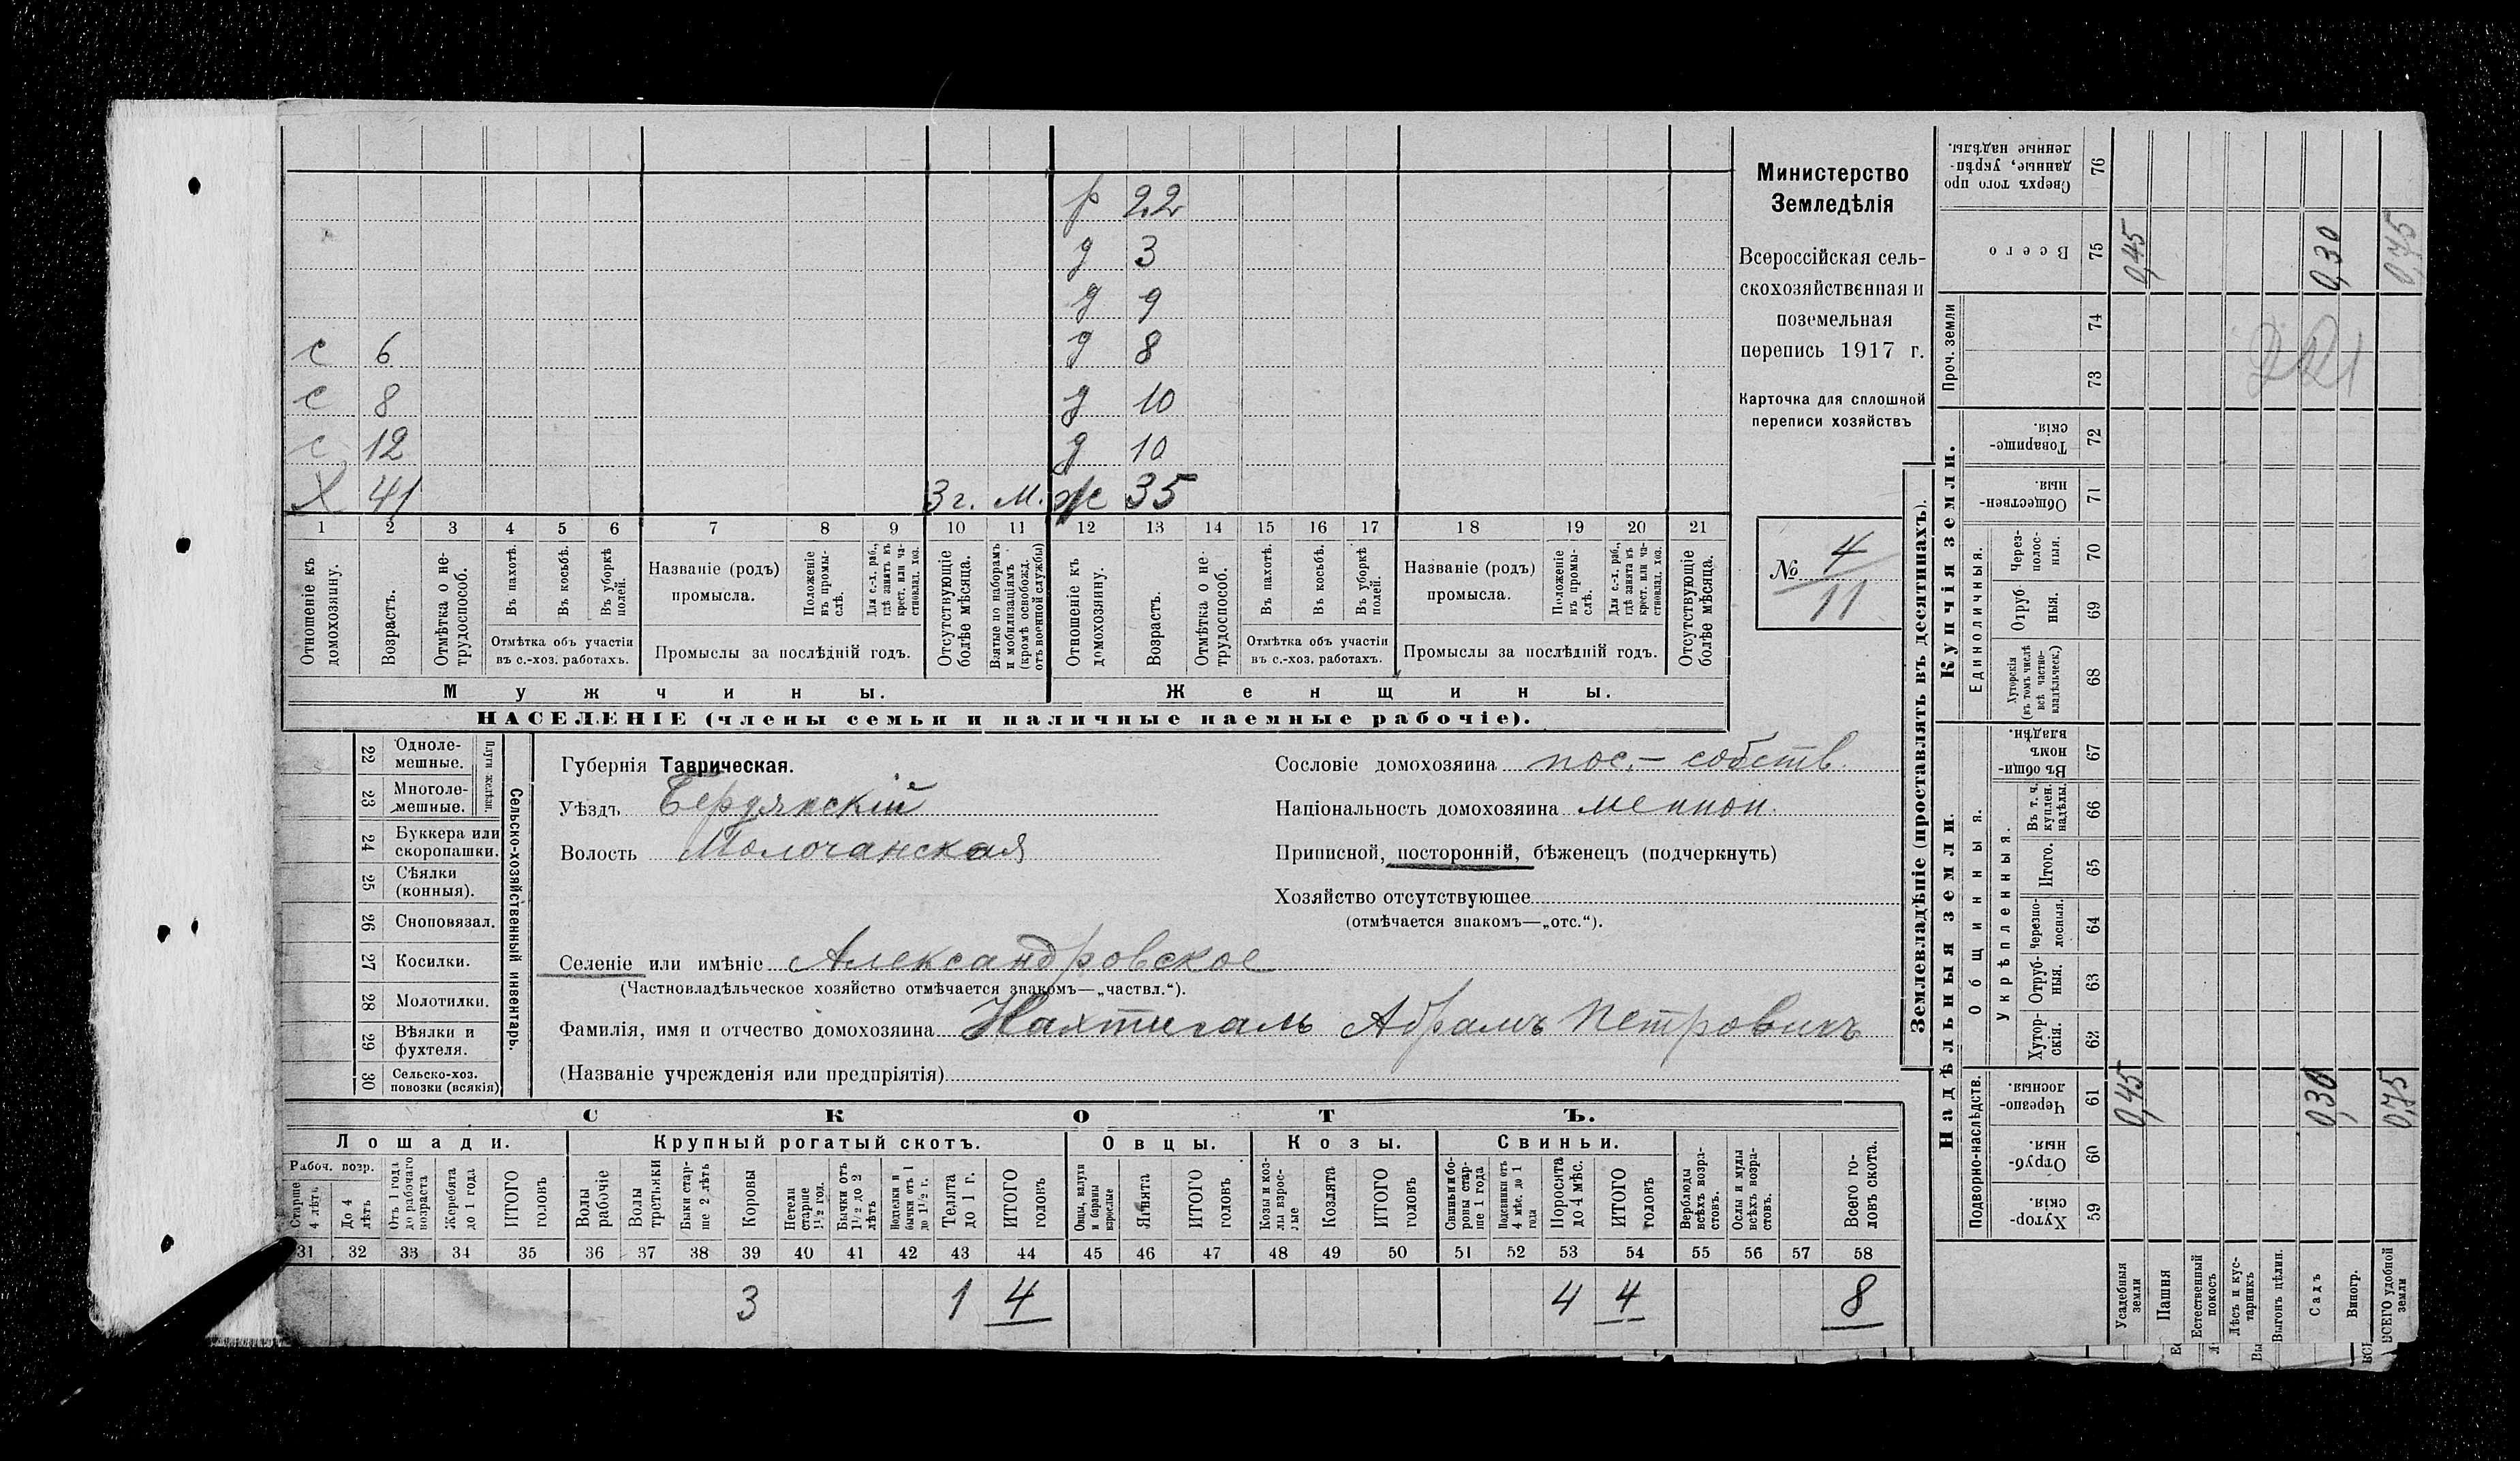 р 22
д 3
д 9
с 6 д 8
с 8 д 10
с 12 д 10
Х 41 3 г. М. ж 35
1 2 3 4 5 6 7 8 9 10 11 12 13 14 15 16 17 18 19 20 21
Отношеніе къ домохозяину.
Возрастъ.
Отмѣтка о не-
трудоспособ.
Въ пахотѣ.
Въ косьбѣ.
Въ уборкѣ
полей.
Отмѣтка объ участіи
въ с.-хоз. работахъ.
Названіе (родъ)
промысла.
Положеніе
въ промы-
слѣ.
Для с.-х. раб.,
гдѣ занятъ въ
крест. или ча-
стновлад. хоз.
Промыслы за послѣдній годъ.
Отсутствующіе
болѣе мѣсяца.
Взятые по наборамъ
и мобилизаціямъ
(кромѣ освобожд.
отъ военной службы)
Отношеніе къ
домохозяину.
Возрастъ.
Отмѣтка о не-
трудоспособ.
Въ пахотѣ.
Въ косьбѣ.
Въ уборкѣ
полей.
Отмѣтка объ участіи
въ с.-хоз. работахъ.
Названіе (родъ)
промысла.
Положеніе
въ промы-
слѣ.
Для с.-х. раб.,
гдѣ занята въ
крест. или ча-
стновлад. хоз.
Промыслы за послѣдній годъ.
Отсутствующіе
болѣе мѣсяца.
Мужчины. Женщины.
НАСЕЛЕНІЕ (члены семьи и наличные наемные рабочіе).
Министерство
Земледѣлія
Всероссійская сель-
скохозяйственная и
поземельная
перепись 1917 г.
Карточка для сплошной
переписи хозяйствъ
№ 4
11
22 Одноле-
мешные.
23 Многоле-
мешные.
Плуги желѣзн.
24 Буккера или
скоропашки.
25 Сѣялки
(конныя).
26 Сноповязал.
27 Косилки.
28 Молотилки.
29 Вѣялки и
фухтеля.
30 Сельско-хоз.
повозки (всякія)
Сельско-хозяйственный инвентарь.
Губернія Таврическая.
Уѣздъ Бердянскій
Волость Молочанская
Сословіе домохозяина пос.- собств.
Національность домохозяина меннон.
Приписной, посторонній, бѣженецъ (подчеркнуть)
Хозяйство отсутствующее
(отмѣчается знакомъ—„отс.“).
Селеніе или имѣніе Александровское
(Частновладѣльческое хозяйство отмѣчается знакомъ—„частвл.“).
Фамилія, имя и отчество домохозяина Нахтигаль Абрамъ Петровичъ
(Названіе учрежденія или предпріятія)
СКОТЪ.
Лошади. Крупный рогатый скотъ. Овцы. Козы. Свиньи.
Рабоч. возр.
Старше
4 лѣтъ
До 4
лѣтъ
Отъ 1 года
до рабочаго
возраста
Жеребята
до 1 года
ИТОГО
головъ
Волы
рабочіе
Волы
третьяки
Быки стар-
ше 2 лѣтъ
Коровы
Нетели
старше
1½ год.
Бычки отъ
1½ до 2
лѣтъ
Подтелки и
бычки отъ 1
до 1½ г.
Телята
до 1 г.
ИТОГО
головъ
Овцы, валухи
и бараны
взрослые
Ягнята
ИТОГО
головъ
Козы и коз-
лы взрос-
лые
Козлята
ИТОГО
головъ
Свиньи и бо-
ровы стар-
ше 1 года
Подсвинки отъ
4 мѣс. до 1
года
Поросята
до 4 мѣс.
ИТОГО
головъ
Верблюды
всѣхъ возра-
стовъ.
Ослы и мулы
всѣхъ возра-
стовъ.
Всего го-
ловъ скота.
31 32 33 34 35 36 37 38 39 40 41 42 43 44 45 46 47 48 49 50 51 52 53 54 55 56 57 58
3 1 4 4 4 8
Землевладѣніе (проставлять въ десятинахъ).
Надѣльныя земли. Купчія земли.
Подворно-наслѣдств.
Общинныя.
Укрѣпленныя.
Единоличныя.
Проч. земли
Хутор-
скія. 59
Отруб-
ныя. 60
Черезпо-
лосныя. 61
Хутор-
скія. 62
Отруб-
ныя. 63
Черезпо-
лосныя. 64
Итого. 65
Въ т. ч.
куплен.
надѣлы. 66
Въ общи-
номъ
владѣн. 67
Хуторскія
(въ томъ числѣ
всѣ частно-
владѣльческ.) 68
Отруб-
ныя. 69
Через-
полос-
ныя. 70
Обществен-
ныя. 71
Товарище-
скія. 72
73
74
Всего 75
Сверхъ того про
данные, укрѣп-
ленные надѣлы. 76
Усадебныя
земли 0,45 0,45
Пашня
Естественный
покосъ
Лѣсъ и кус-
тарникъ
Выгонъ цѣлин.
Садъ 0,30 0,30
Виногр.
ВСЕГО удобной
земли 0,75 0,75